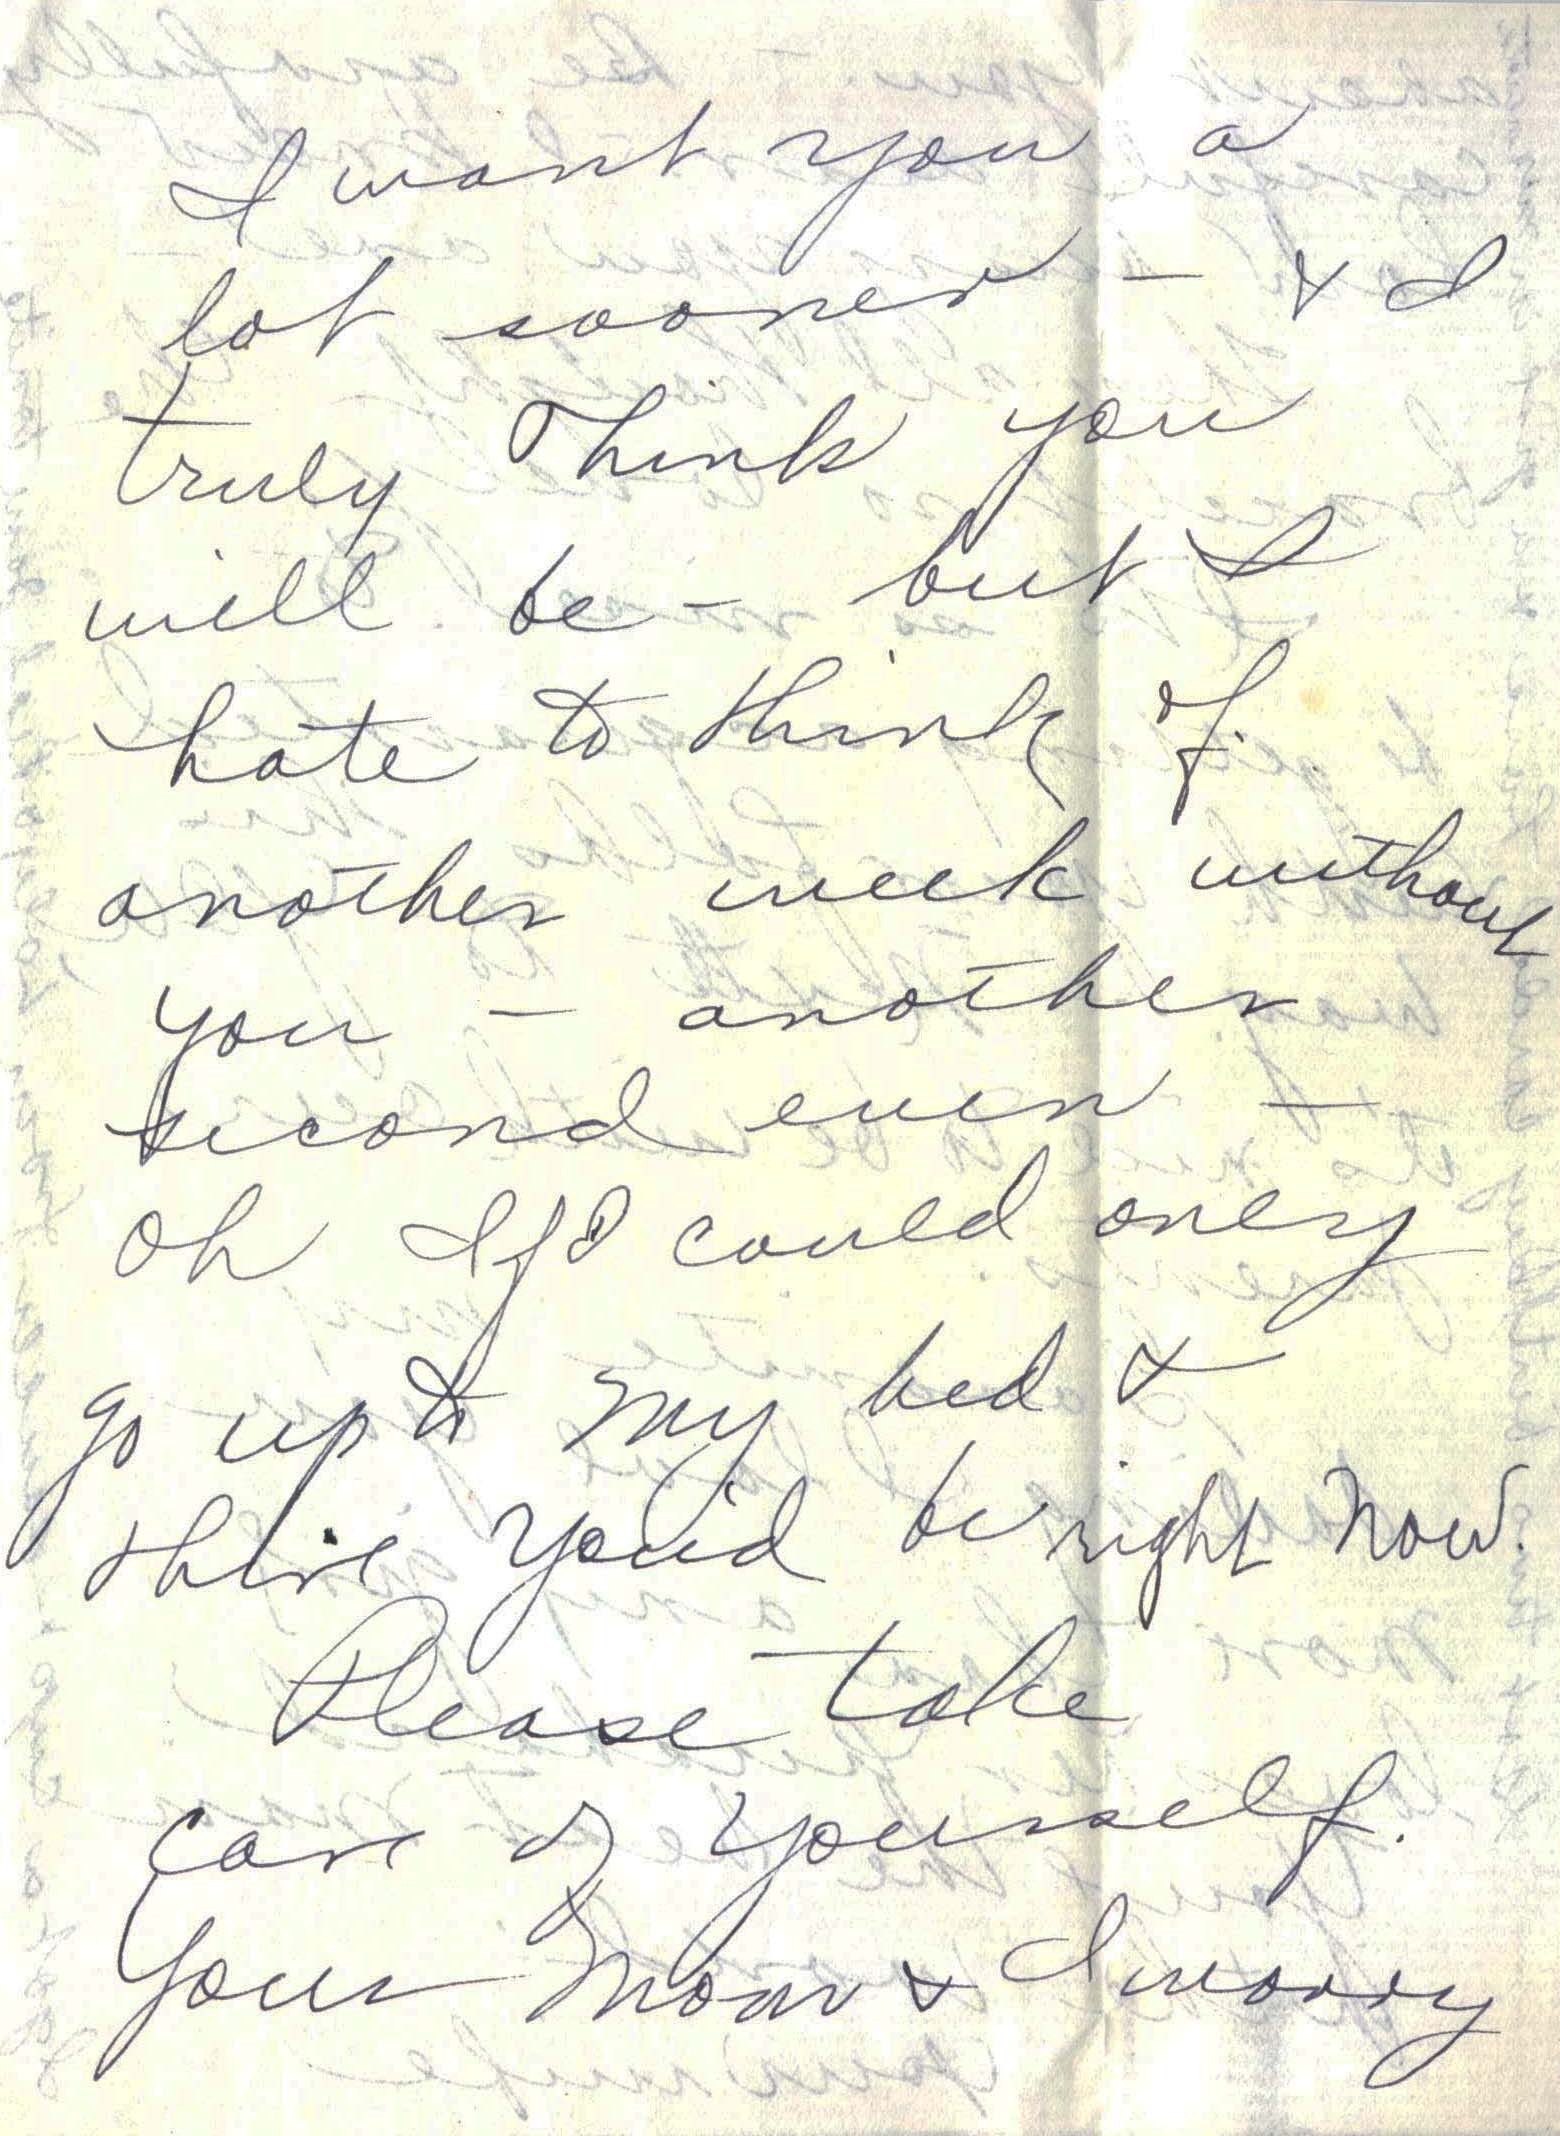 I want you a
lot sooner - & I
truly think you
will be - but I
hate to think of
another week without
you - another
second even -
oh If I could only
go up to my bed &
there you'd be right now.
Please take
care of yourself.
Your Mom & I worry